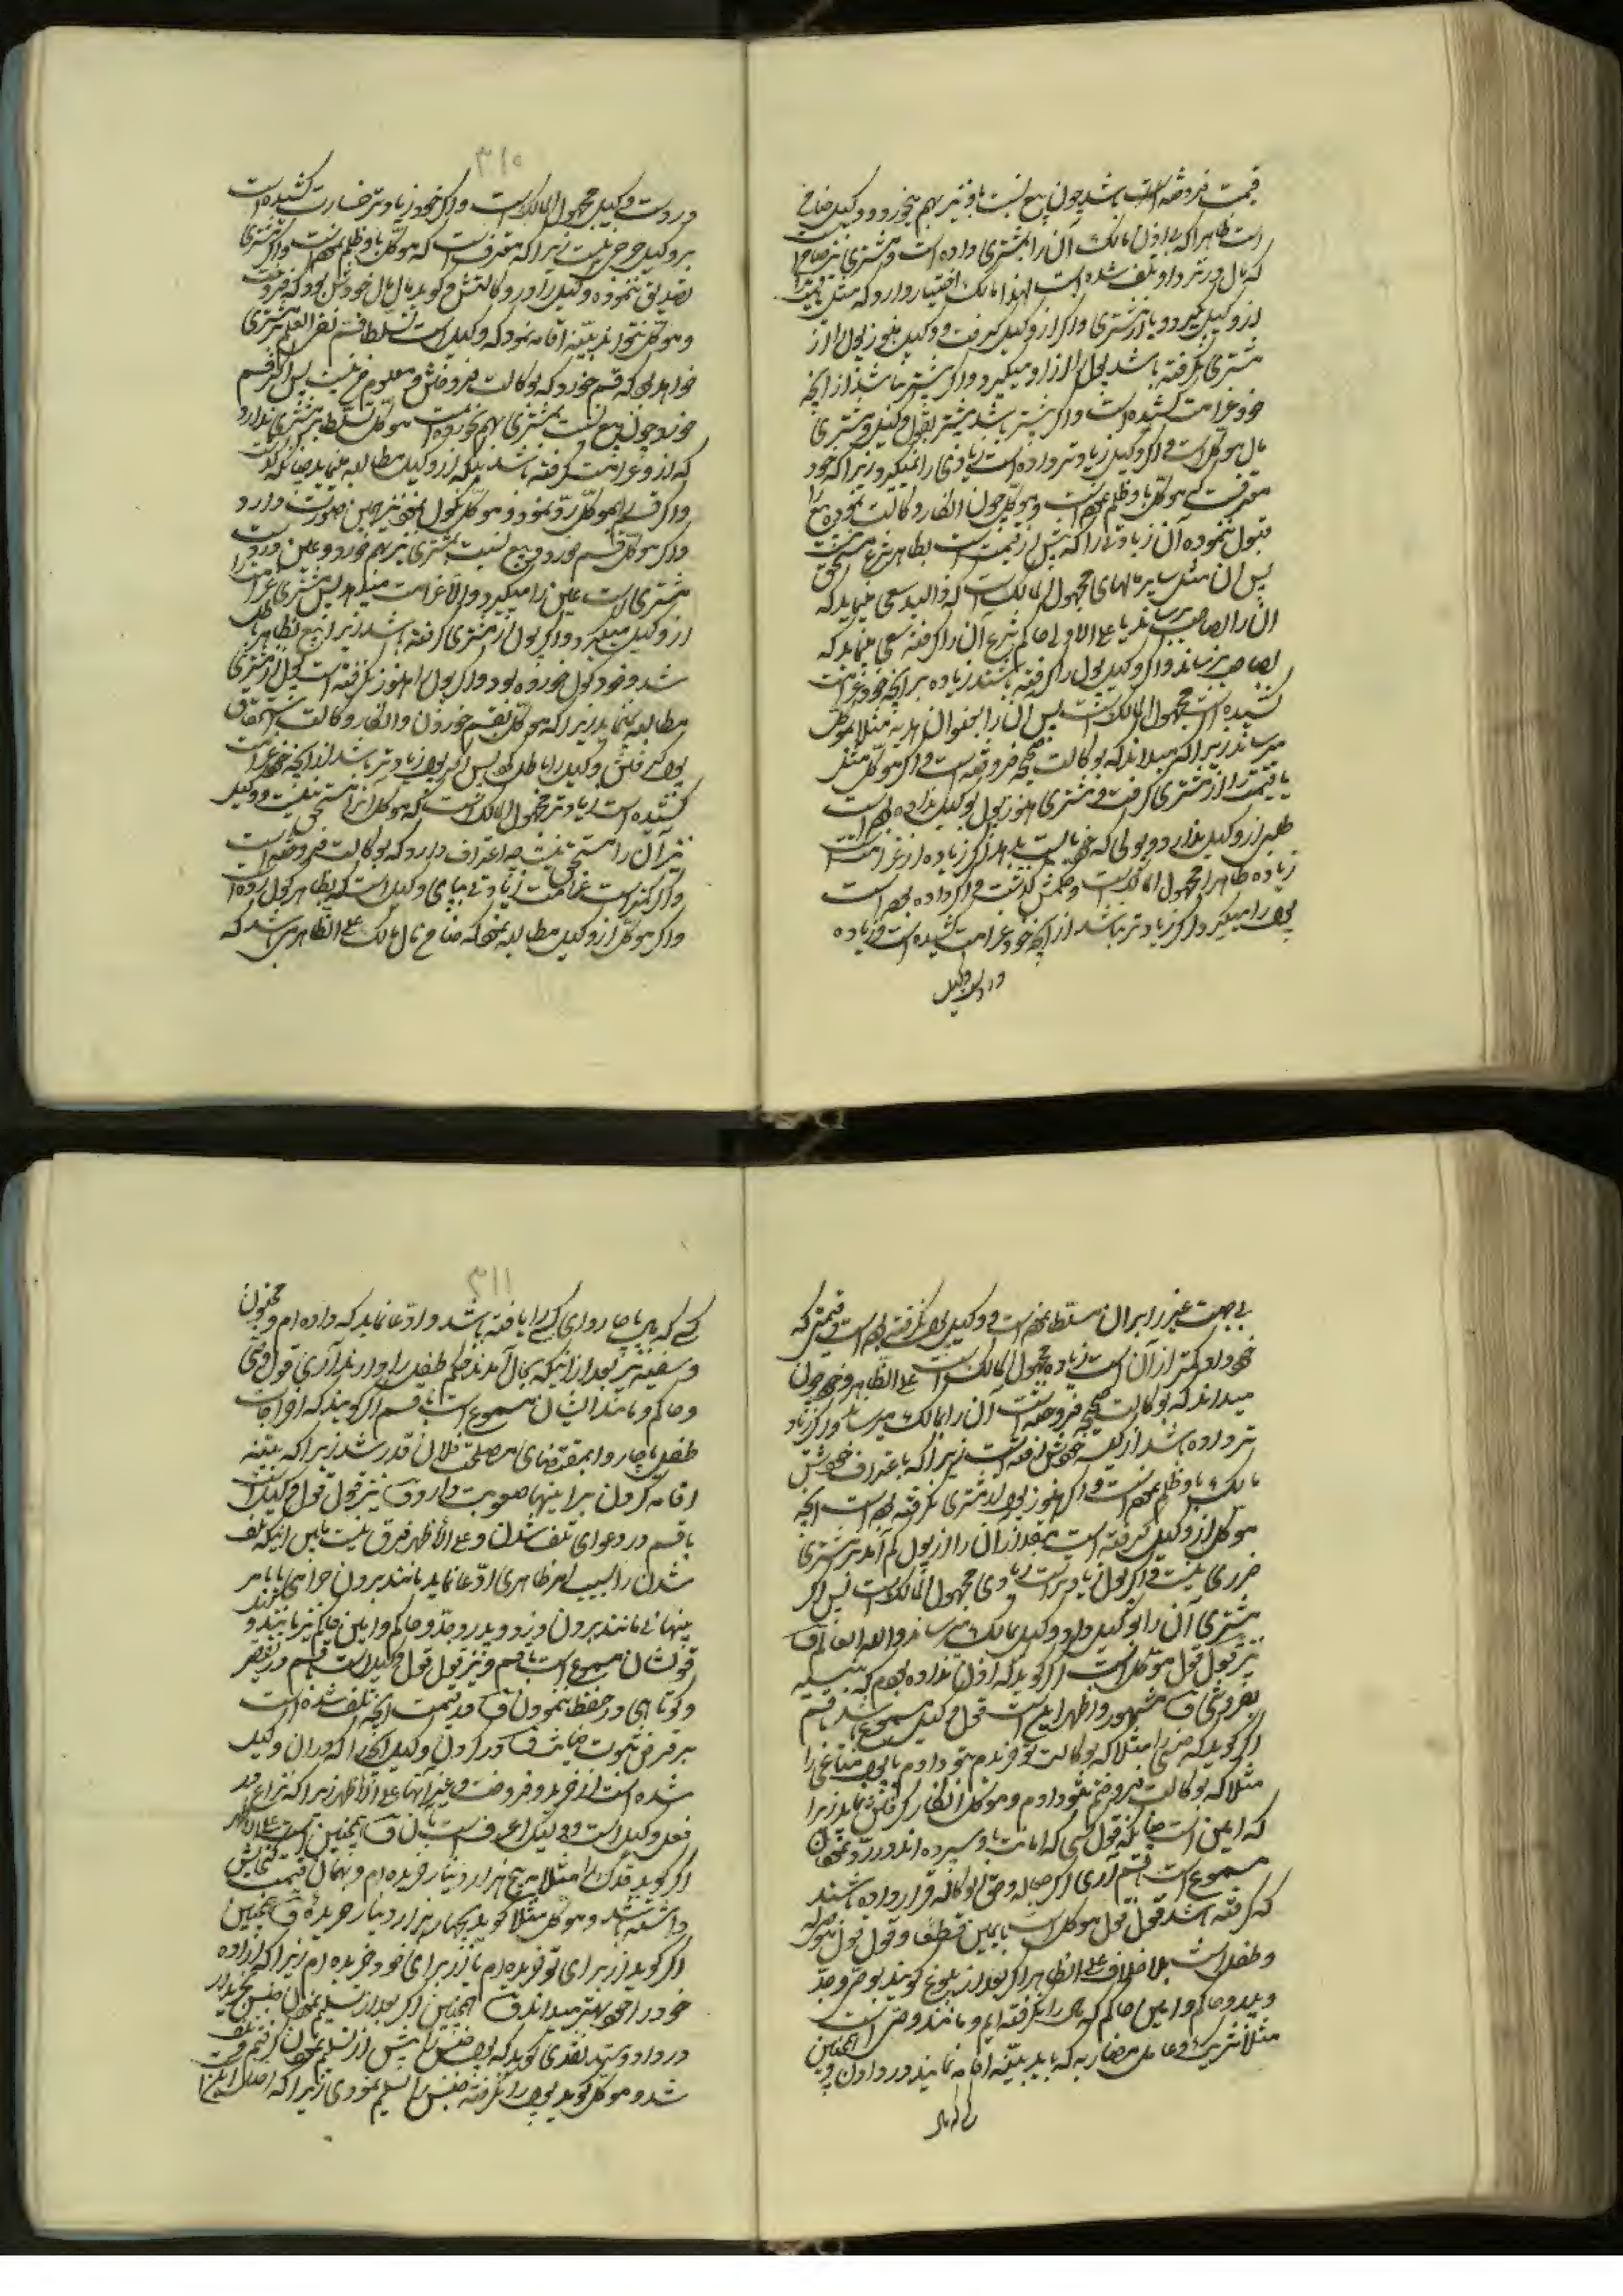 قیمت فروخته است باشد چون بیع نسبت باو نیز بهم بخورد و وکیل ضامن
است ظاهرا که بی اذن مالک آن را بمشتری داده است و مشتری نیز ضامن
که مال در نزد او تلف شده است لهذا مالک اختیار دارد که مثل یا قیمت را
از وکیل گیرد و یا از مشتری و اگر از وکیل گرفت و وکیل هنوز پول را از
مشتری نگرفته باشد پول را از او میگیرد و اگر بیشتر نباشد از آنچه
خود غرامت کشیده است و اگر بیشتر باشد بیشتر بقول وکیل و مشتری
مال موکل است و اگر وکیل زیادتر داده است زیادی را نمیگیرد زیرا که خود
معترفست که موکل باو ظلم نموده است و موکل چون انکار وکالت نموده بیع را
قبول ننموده آن زیادتی را که بیش از قیمت است بظاهر شرع مستحق نیست
پس آن مثل سایر مالهای مجهول المالک است که ذوالید سعی مینماید که
آن را بصاحبش رساند یا علی الاولی حاکم شرع آن را گرفته سعی مینماید که
بصاحبش رساند و اگر وکیل پول را گرفته باشد زیاده بر آنچه خود غرامت
کشیده است مجهول المالک است پس آن را بعنوان هدیه مثلا بموکل
میرساند زیرا که میداند که بوکالت صحیحه فروخته است و اگر موکل مثل
یا قیمت را از مشتری گرفت و مشتری هنوز پول بوکیل نداده بوده است
طلبی از وکیل ندارد و پولی که خود بایست بدهد اگر زیاده از غرامت است
زیاده ظاهرا مجهول المالک است و حکمش گذشت و اگر داده بوده است
پول را میگیرد اگر زیادتر نباشد از آنچه خود غرامت کشیده است و زیاده
در دست وکیل
۳۱۰
در دست وکیل مجهول المالک است و اگر خود زیادتر خسارت کشیده است
بر وکیل حرجی نیست زیرا که معترف است که موکل باو ظلم نموده است و اگر مشتری
تصدیق ننموده وکیل را در وکالتش و گوید مال مال خودش بود که فروخت
و موکل نتواند بینه اقامه نمود که وکیل است تسلط قسم نفی العلم بمشتری
خواهد بود که قسم خورد که بوکالت فروختنش معلوم من نیست پس اگر قسم
خورد چون بیع نسبت بمشتری بهم نخورده است موکل تسلط بر مشتری ندارد
که از او غرامت گرفته باشد بلکه از وکیل مطالبه مینماید چنانکه گذشت
و اگر قسم را بموکل رد نمود و موکل نکول نمود نیز همین صورت دارد
و اگر موکل قسم خورد بیع نسبت بمشتری نیز بهم خورد و عین در دست
مشتری است عین را میگیرد و الا غرامت میکشد پس مشتری غرامت را
از وکیل میگیرد و اگر پول از مشتری گرفته باشد زیرا بیع بظاهر باطل
شد و خود گول خورده بود و اگر پول را هنوز نگرفته است پول را از مشتری
مطالبه نمینماید زیرا که موکل بقسم خوردن و انکار وکالت استحقاق
پول گرفتن وکیل را باطل نمود پس اگر پول زیادتر باشد از آنچه خود غرامت
کشیده است زیادتر مجهول المالک است که موکل آنرا مستحق نیست و وکیل
نیز آن را مستحق نیست چه اعتراف دارد که بوکالت فروخته است
و اگر کمتر است غرامت زیادتی بپای وکیل است که بظاهر گول زده است
و اگر موکل از وکیل مطالبه نمود که ضامن مال مالک علی الظاهر میباشد که
بی جهت غیر را بر آن مسلط نموده است و وکیل پول نگرفته بوده است و قیمتی که
خود داد کمتر از آن است زیاده مجهول المالک است علی الظاهر و خود چون
میداند که بوکالت صحیحه فروخته است آن را بمالک میرساند و اگر زیاد
تر داده باشد از کیسه خودش رفته است زیرا که باعتراف خودش
مالک باو ظلم نموده است و اگر هنوز پول از مشتری نگرفته بوده است آنچه
موکل از وکیل گرفته است بقدر آن را از پول کم آمد بر مشتری
ضرری نیست و اگر پول زیادتر است زیادی مجهول المالک است پس اگر
مشتری آن را بوکیل داد و وکیل بمالک میرساند و الله العالم ق
نیز قول قول موکل است اگر گوید که اذن نداده بودم که نسیه
بفروشی ق مشهور و اظهر این است قول وکیل مسموع باشد با قسم
اگر گوید که جنس را مثلا که بوکالت تو خریدم بتو دادم یا پول متاعی را
مثلا که بوکالت فروختم بتو دادم و موکل انکار گرفتن نماید زیرا
که امین است چنانکه قول کسی که امانت باو سپرده اند در رد نمودن
مسموع است با قسم آری اگر جعاله و حق الوکاله قرار داده باشند
که گرفته باشد قول قول موکل است با یمین قطعا و قول قول موصی له
و طفل است بلا خلاف علی الظاهر اگر بعد از بلوغ گویند بوصی و جد
و پدر و حاکم و امین حاکم که مال را نگرفته ایم و مانند وصی است
مثلا شریک و عامل مضاربه که باید بینه اقامه نمایند در دادن و همچنین
کسی که مال
۳۱۱
کسی که مال یا چاروای کسی را یافته باشد و ادعا نماید که داده ام و مجنون
و سفیه نیز بعد از اینکه بحال آمدند حکم طفل را دارند آری قول وصی
و حاکم و مانند ایشان مسموع است با قسم اگر گویند که اخراجات
طفل یا چاروا بمقتضای مصلحت فلان قدر شد زیرا که بینه
اقامه کردن بر اینها صعوبت دارد ق نیز قول قول وکیل است
با قسم در دعوای تلف شدن و علی الاظهر فرق نیست بین اینکه تلف
شدن را بسبب امر ظاهری ادعا نماید مانند بردن حرامی یا بامر
پنهانی مانند بردن دزد و پدر و جد و حاکم و امین حاکم نیز مانند او
قولشان مسموع است با قسم و نیز قول قول وکیل است با قسم در تقصیر
و کوتاهی در حفظ نمودن ق قدر قیمت آنچه تلف شده است
بر فرض ثبوت خیانت ق در کردن وکیل آنچه را که در آن وکیل
شده است از خرید و فروخت و غیر آنها علی الاظهر زیرا که نزاع در
فعل وکیل است و وکیل اعرف است بآن ق همچنین است علی الاظهر
اگر گوید فلان را مثلا به پنج هزار دینار خریده ام و بهمان قیمت گنجایش
داشته باشد و موکل مثلا گوید بچهار هزار دینار خریده ق همچنین
اگر گوید از برای تو خریده ام یا از برای خود خریده ام زیرا که اراده
خود را خود بهتر میداند ق همچنین اگر بعد از تسلیم نمودن جنس بخریدار
در داد و ستد نقدی گوید که پول جنس را پیش از تسلیم نمودن گرفتم و تلف
شد و موکل گوید پول را نگرفته جنس را تسلیم نمودی زیرا که اصل امین است